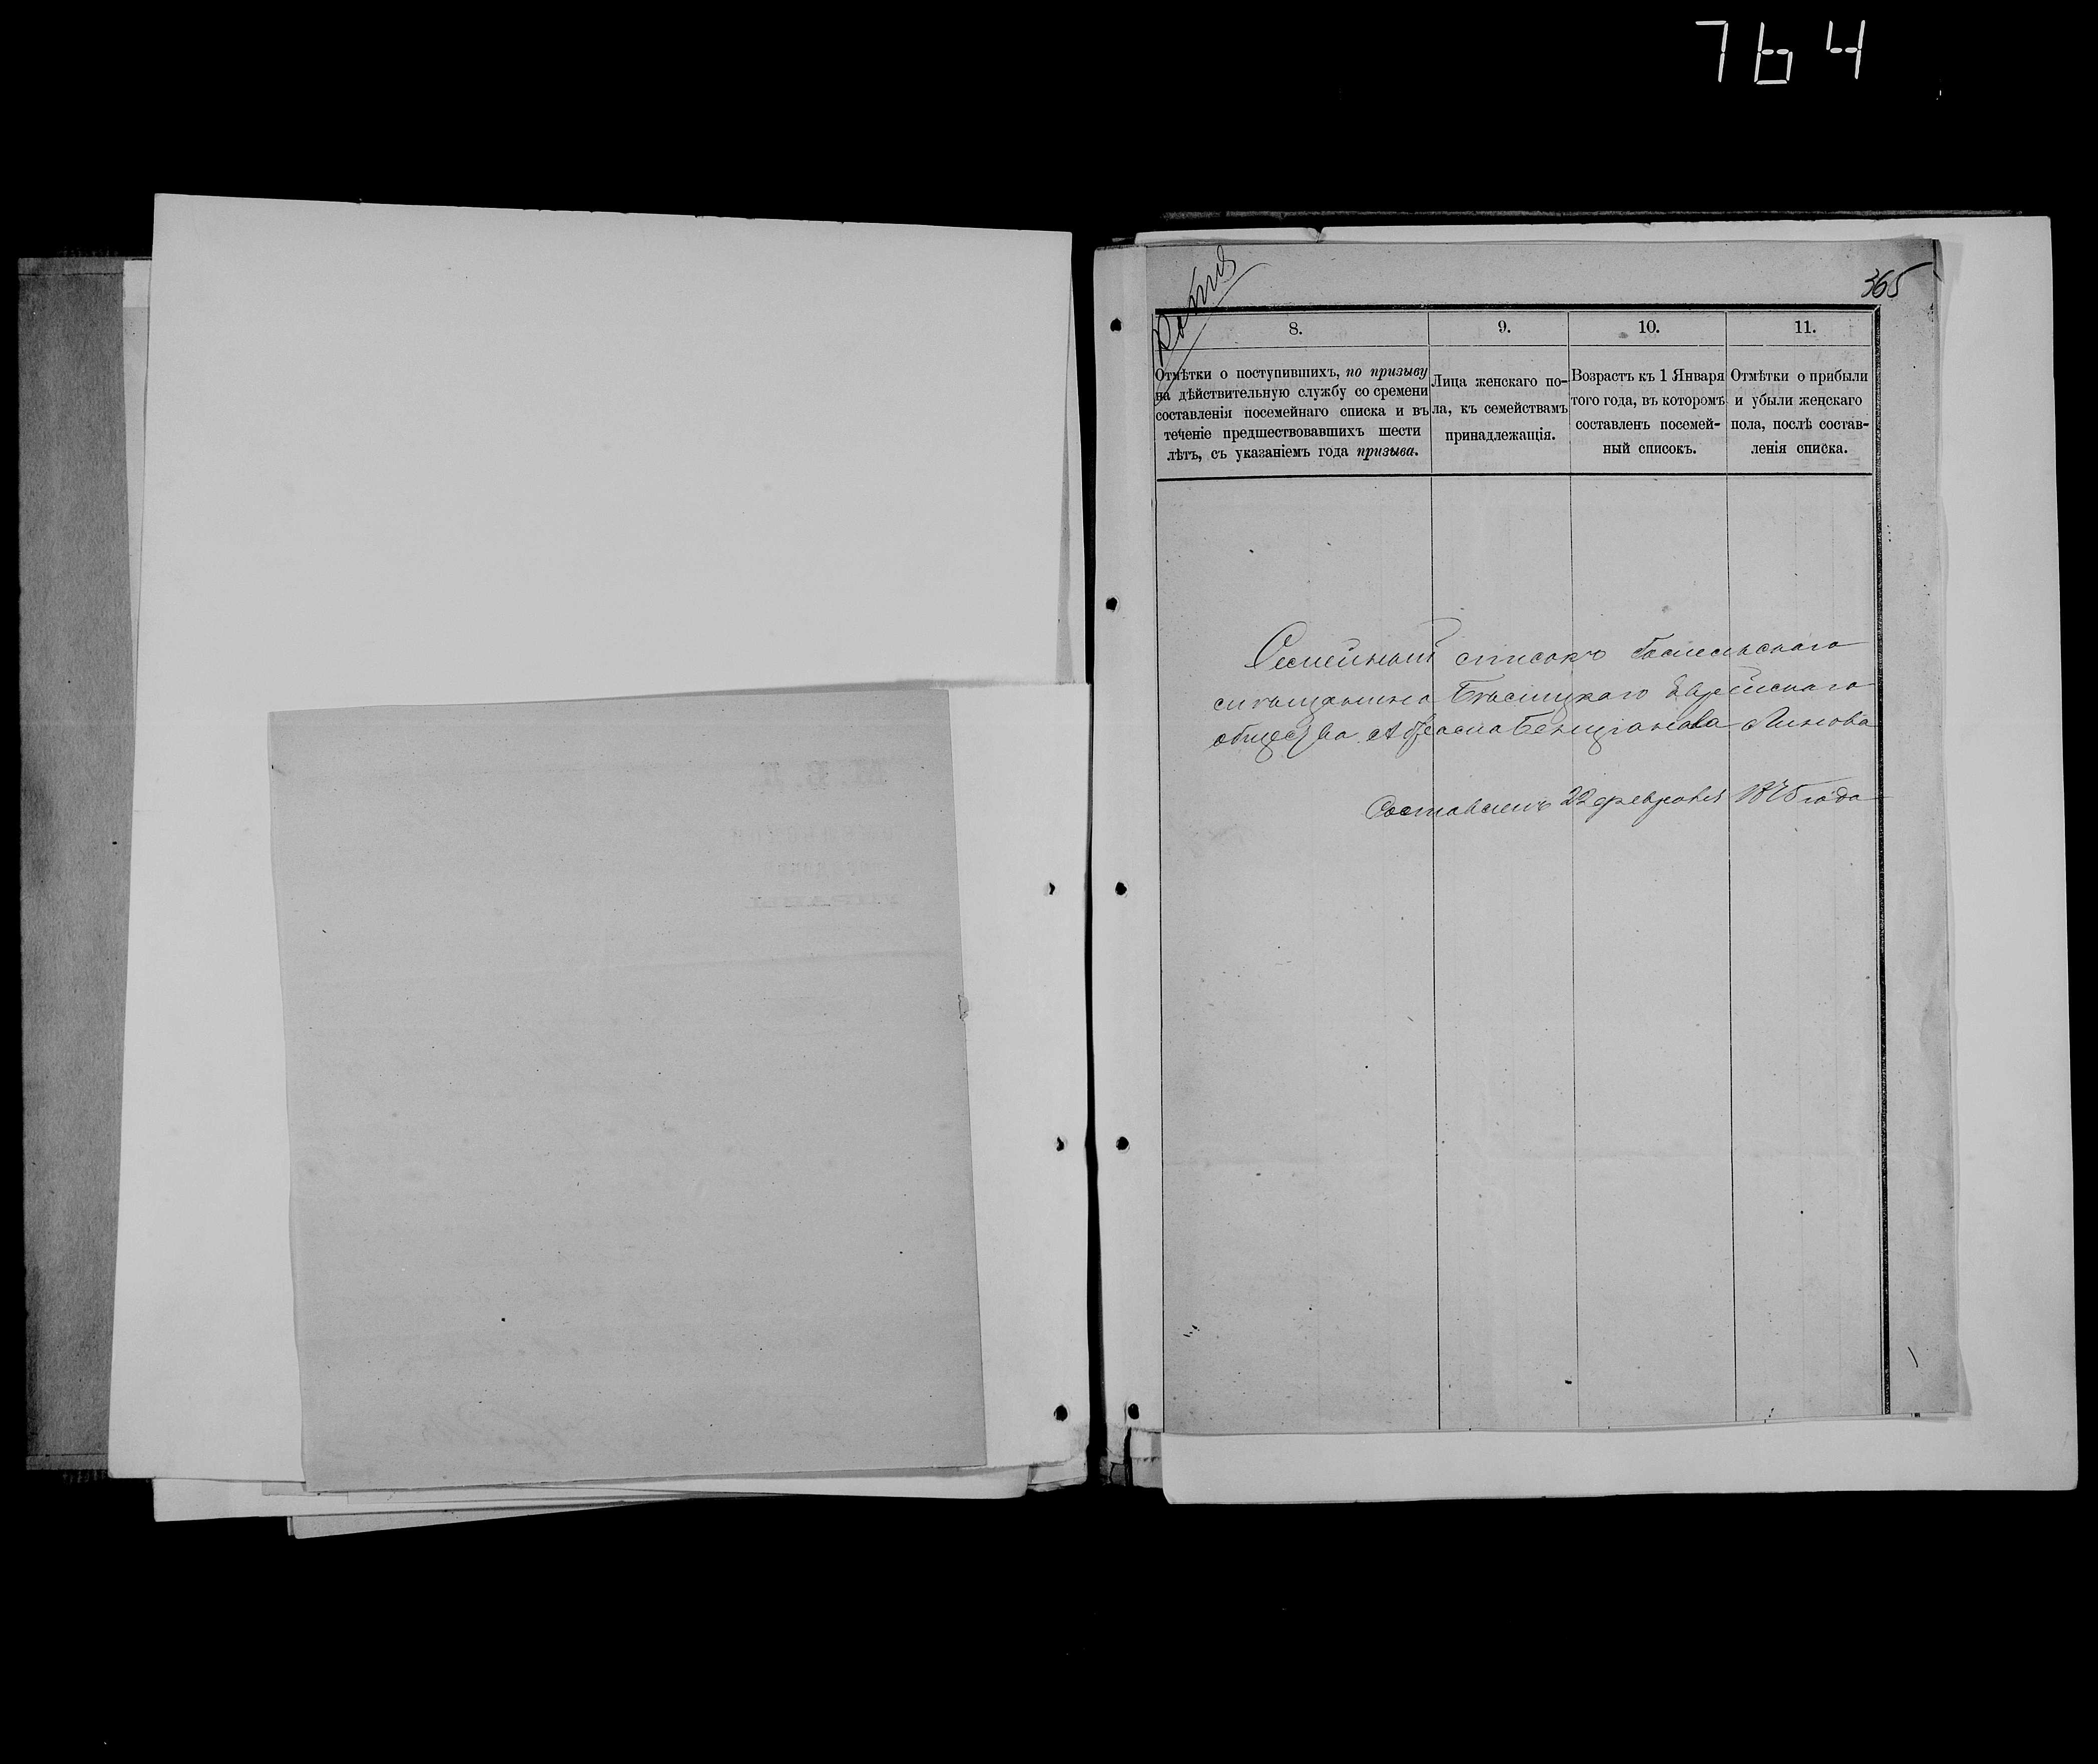 764
365
Копия
8.
9.
10.
11.
Отмѣтки о поступившихъ, по призыву
на дѣйствительную службу со сремени
составленія посемейнаго списка и въ
теченіе предшествовавшихъ шести
лѣтъ, съ указаніемъ года призыва.
Лица женскаго по-
ла, къ семействамъ
принадлежащія.
Возрастъ къ 1 Января
того года, въ которомъ
составленъ посемей-
ный списокъ.
Отмѣтки о прибыли
и убыли женскаго
пола, послѣ состав-
ленія списка.
Семейный списокъ Гомельскаго
мѣщанина Еврейскаго
общества Абрама Бенціанова Линова
Составленъ 22 февраля 1875 года